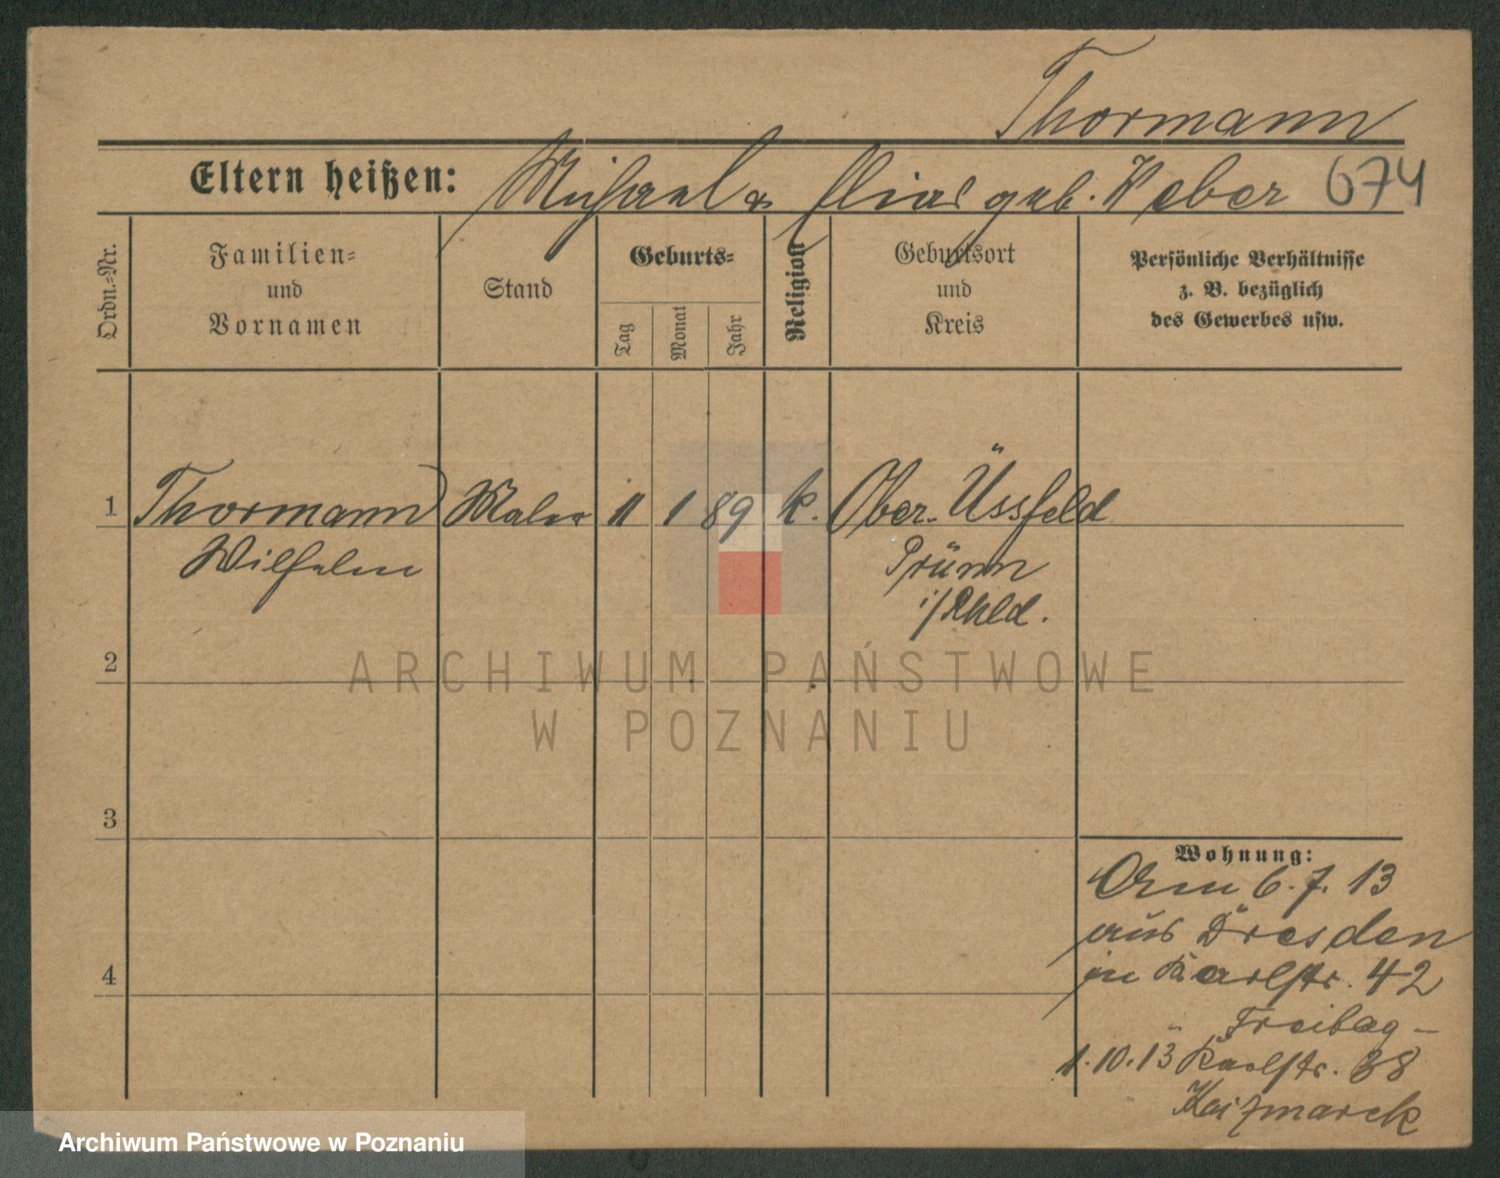 Thormann
Eltern heißen: Michael & geb. Weber 674
Ordn.-Nr.
Familien-
und
Vornamen
Stand
Geburts-
Tag
Monat
Jahr
Religion
Geburtsort
und
Kreis
Persönliche Verhältnisse
z. B. bezüglich
des Gewerbes usw.
1 Thormann Maler 11 1 89 k. Ober-Üssfeld
Wilhelm Prümm
i/Rhld.
2
ARCHIWUM PAŃSTWOWE
W POZNANIU
3
Wohnung:
6.7.13
aus Dresden
in Karlstr. 42
Freitag
4
1.10.13 Karlstr. 38
Kaizmarek
Archiwum Państwowe w Poznaniu